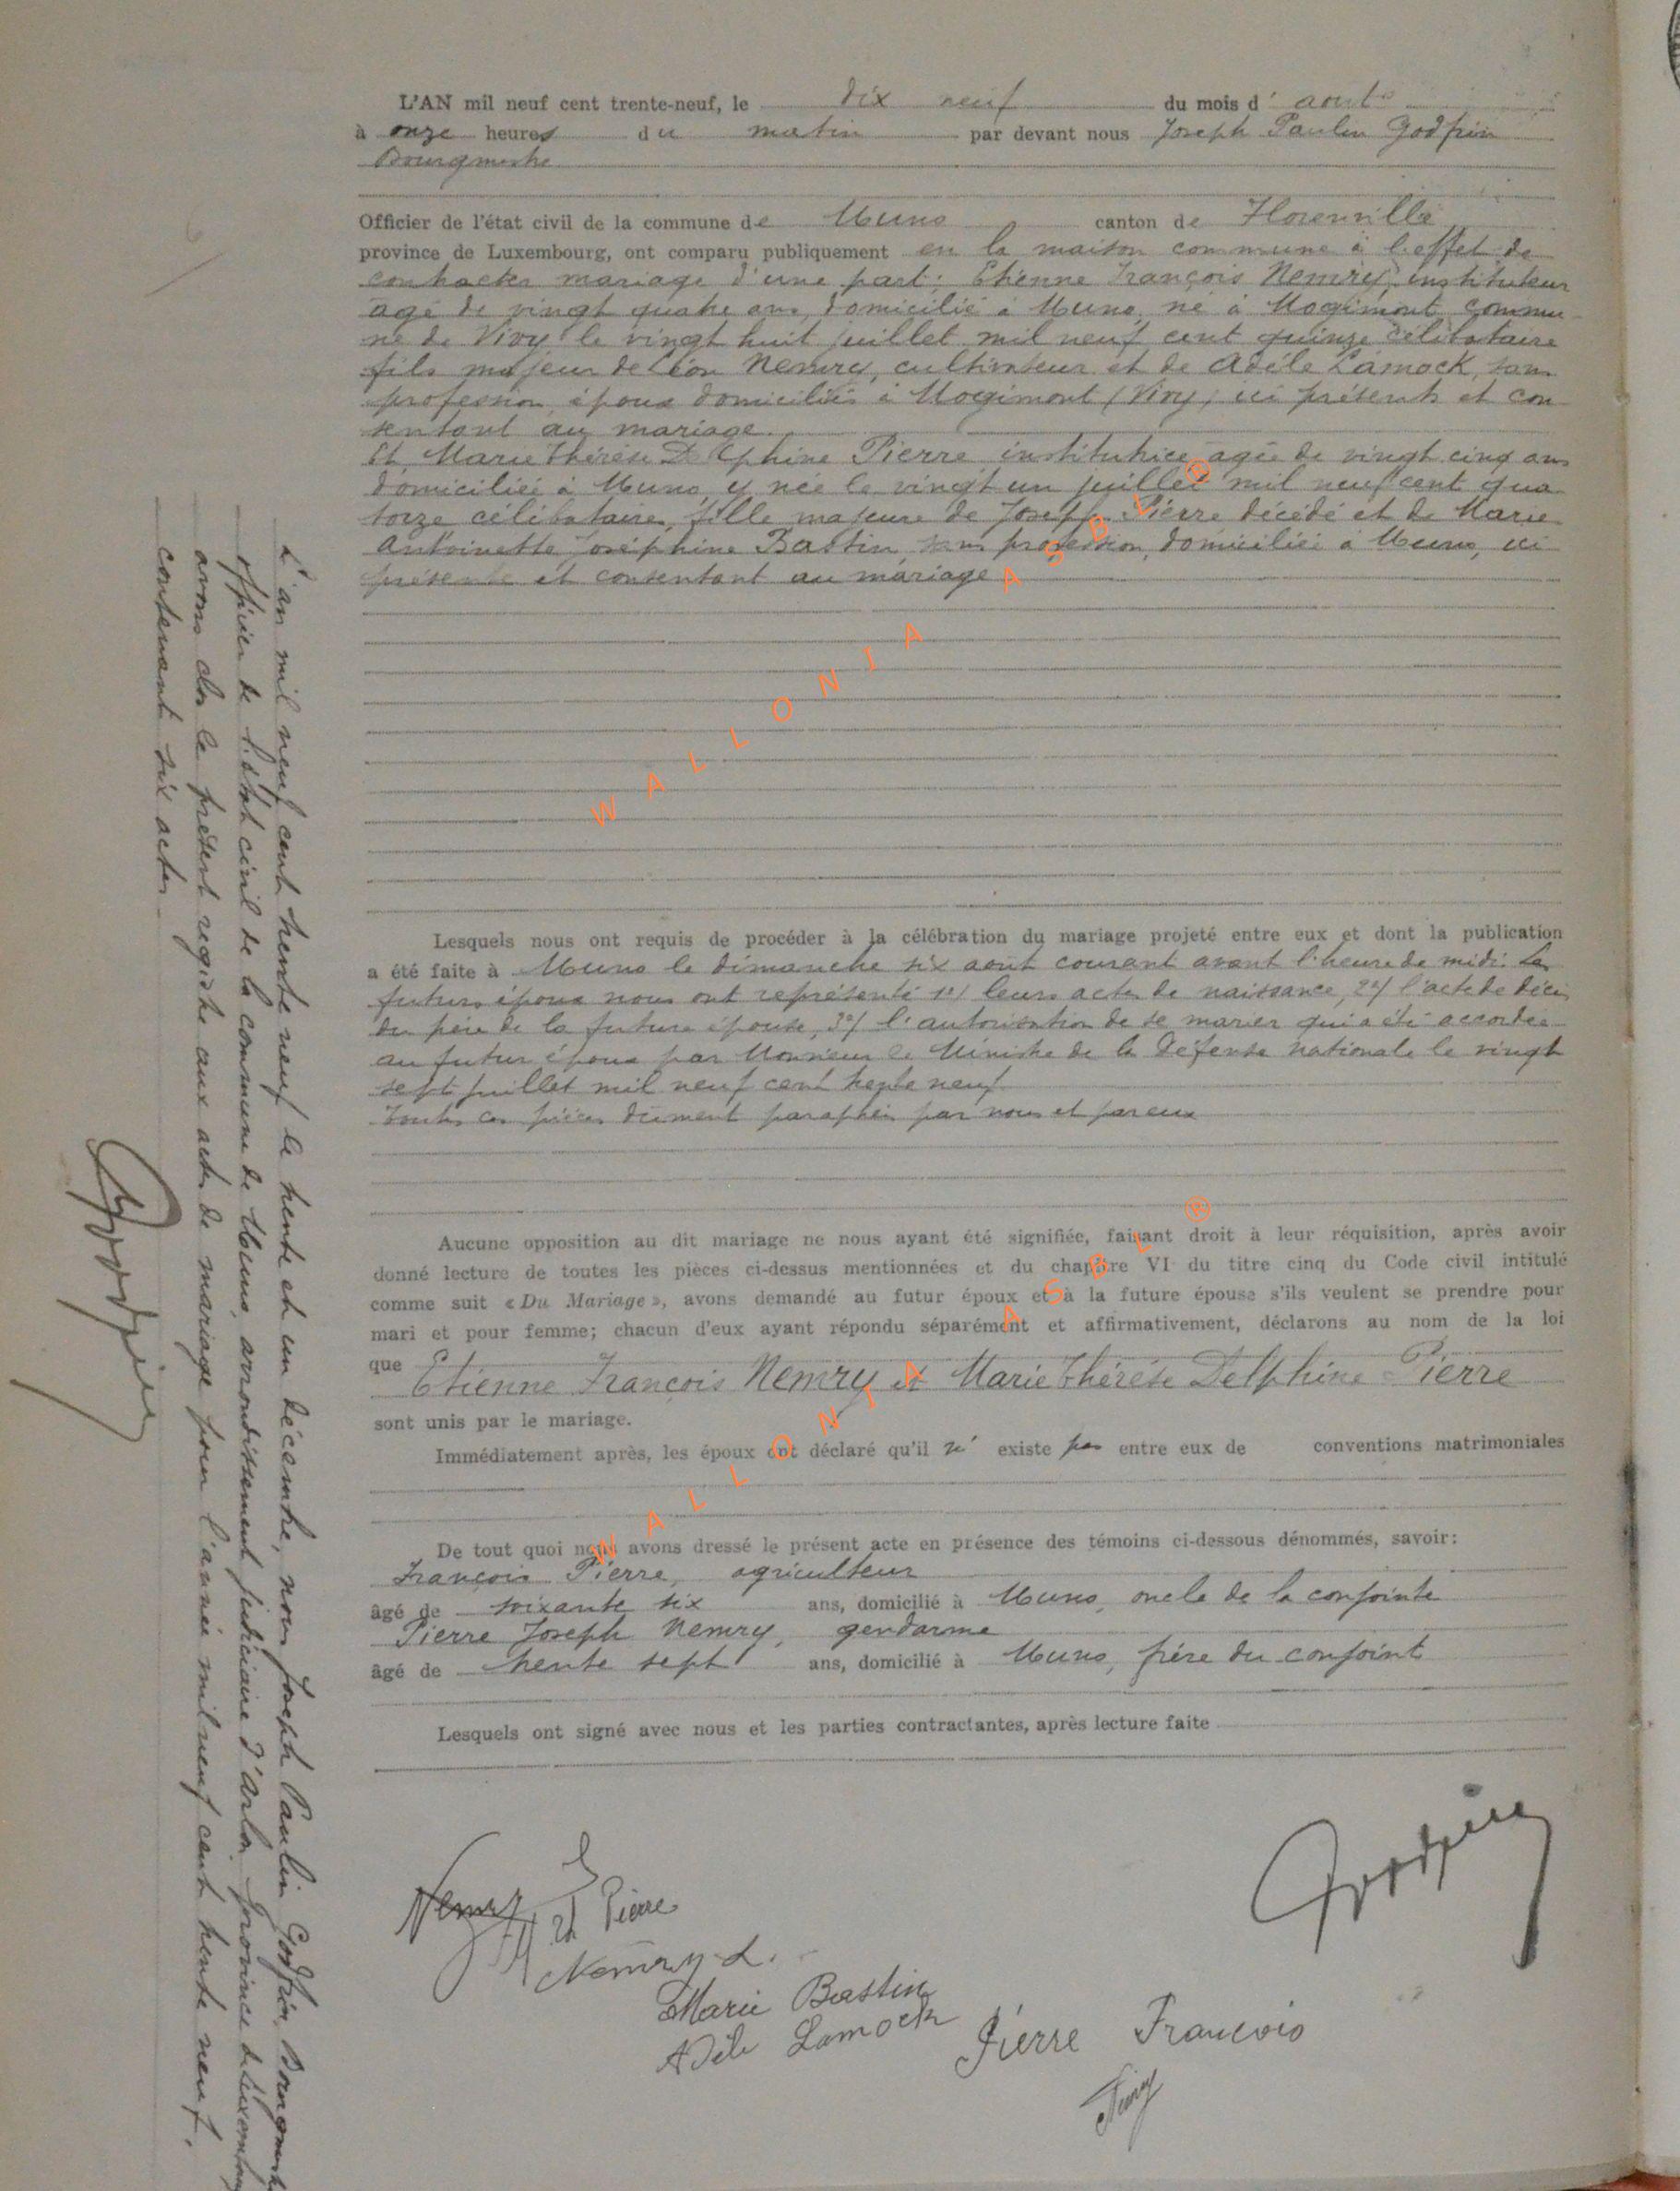 L'AN mil neuf cent trente-neuf, le dix neuf du mois d' aout
à onze heures du matin par devant nous Joseph Paulin Godfrin
Bourgmestre
Officier de l'état civil de la commune de Muno canton de Florenville
province de Luxembourg, ont comparu publiquement en la maison commune à l'effet de
contracter mariage d'une part: Etienne François Nemry, instituteur
agé de vingt quatre ans, domicilié à Muno, né à Mogimont commu
ne de Vivy le vingt huit juillet mil neuf cent quinze célibataire
fils majeur de Léon Nemry, cultivateur et de Adèle Lamock, sans
profession, époux domiciliés à Mogimont (Vivy) ici présents et con
sentant au mariage.
Et Marie Thérèse Delphine Pierre institutrice agée de vingt cinq ans
domiciliée à Muno, y née le vingt un juillet mil neuf cent qua
torze célibataire, fille majeure de Joseph Pierre décédé et de Marie
Antoinette Joséphine Bastin, sans profession, domiciliée à Muno, ici
présente et consentant au mariage
Lesquels nous ont requis de procéder à la célébration du mariage projeté entre eux et dont la publication
a été faite à Muno le dimanche six août courant avant l'heure de midi. Les
futurs époux nous ont représenté 1°/ leurs actes de naissance, 2°/ l'acte de décès
du père de la future épouse, 3°/ l'autorisation de se marier qui a été accordée
au futur époux par Monsieur le Ministre de la Défense Nationale le vingt
sept juillet mil neuf cent trente neuf.
Toutes ces pièces dûment paraphées par nous et par eux
Aucune opposition au dit mariage ne nous ayant été signifiée, faisant droit à leur réquisition, après avoir
donné lecture de toutes les pièces ci-dessus mentionnées et du chapitre VI du titre cinq du Code civil intitulé
comme suit « Du Mariage », avons demandé au futur époux et à la future épouse s'ils veulent se prendre pour
mari et pour femme; chacun d'eux ayant répondu séparément et affirmativement, déclarons au nom de la loi
que Etienne François Nemry et Marie Thérèse Delphine Pierre
sont unis par le mariage.
Immédiatement après, les époux ont déclaré qu'il n' existe pas entre eux de conventions matrimoniales
De tout quoi nous avons dressé le présent acte en présence des témoins ci-dessous dénommés, savoir:
François Pierre, agriculteur
âgé de soixante six ans, domicilié à Muno, oncle de la conjointe
Pierre Joseph Nemry, gendarme
âgé de trente sept ans, domicilié à Muno, frère du conjoint
Lesquels ont signé avec nous et les parties contractantes, après lecture faite
Godfrin
Nemry Pierre
Nemry L.
Marie Bastin
Adèle Lamock
Pierre François
L'an mil neuf cent trente neuf le trente et un décembre, nous Joseph Paulin Godfrin, Bourgmestre
officier de l'état civil de la commune de Muno, arrondissement judiciaire d'Arlon, province de Luxembourg
avons clos le présent registre aux actes de mariage pour l'année mil neuf cent trente neuf,
contenant six actes
Godfrin
WALLONIA ASBL ®
WALLONIA ASBL ®